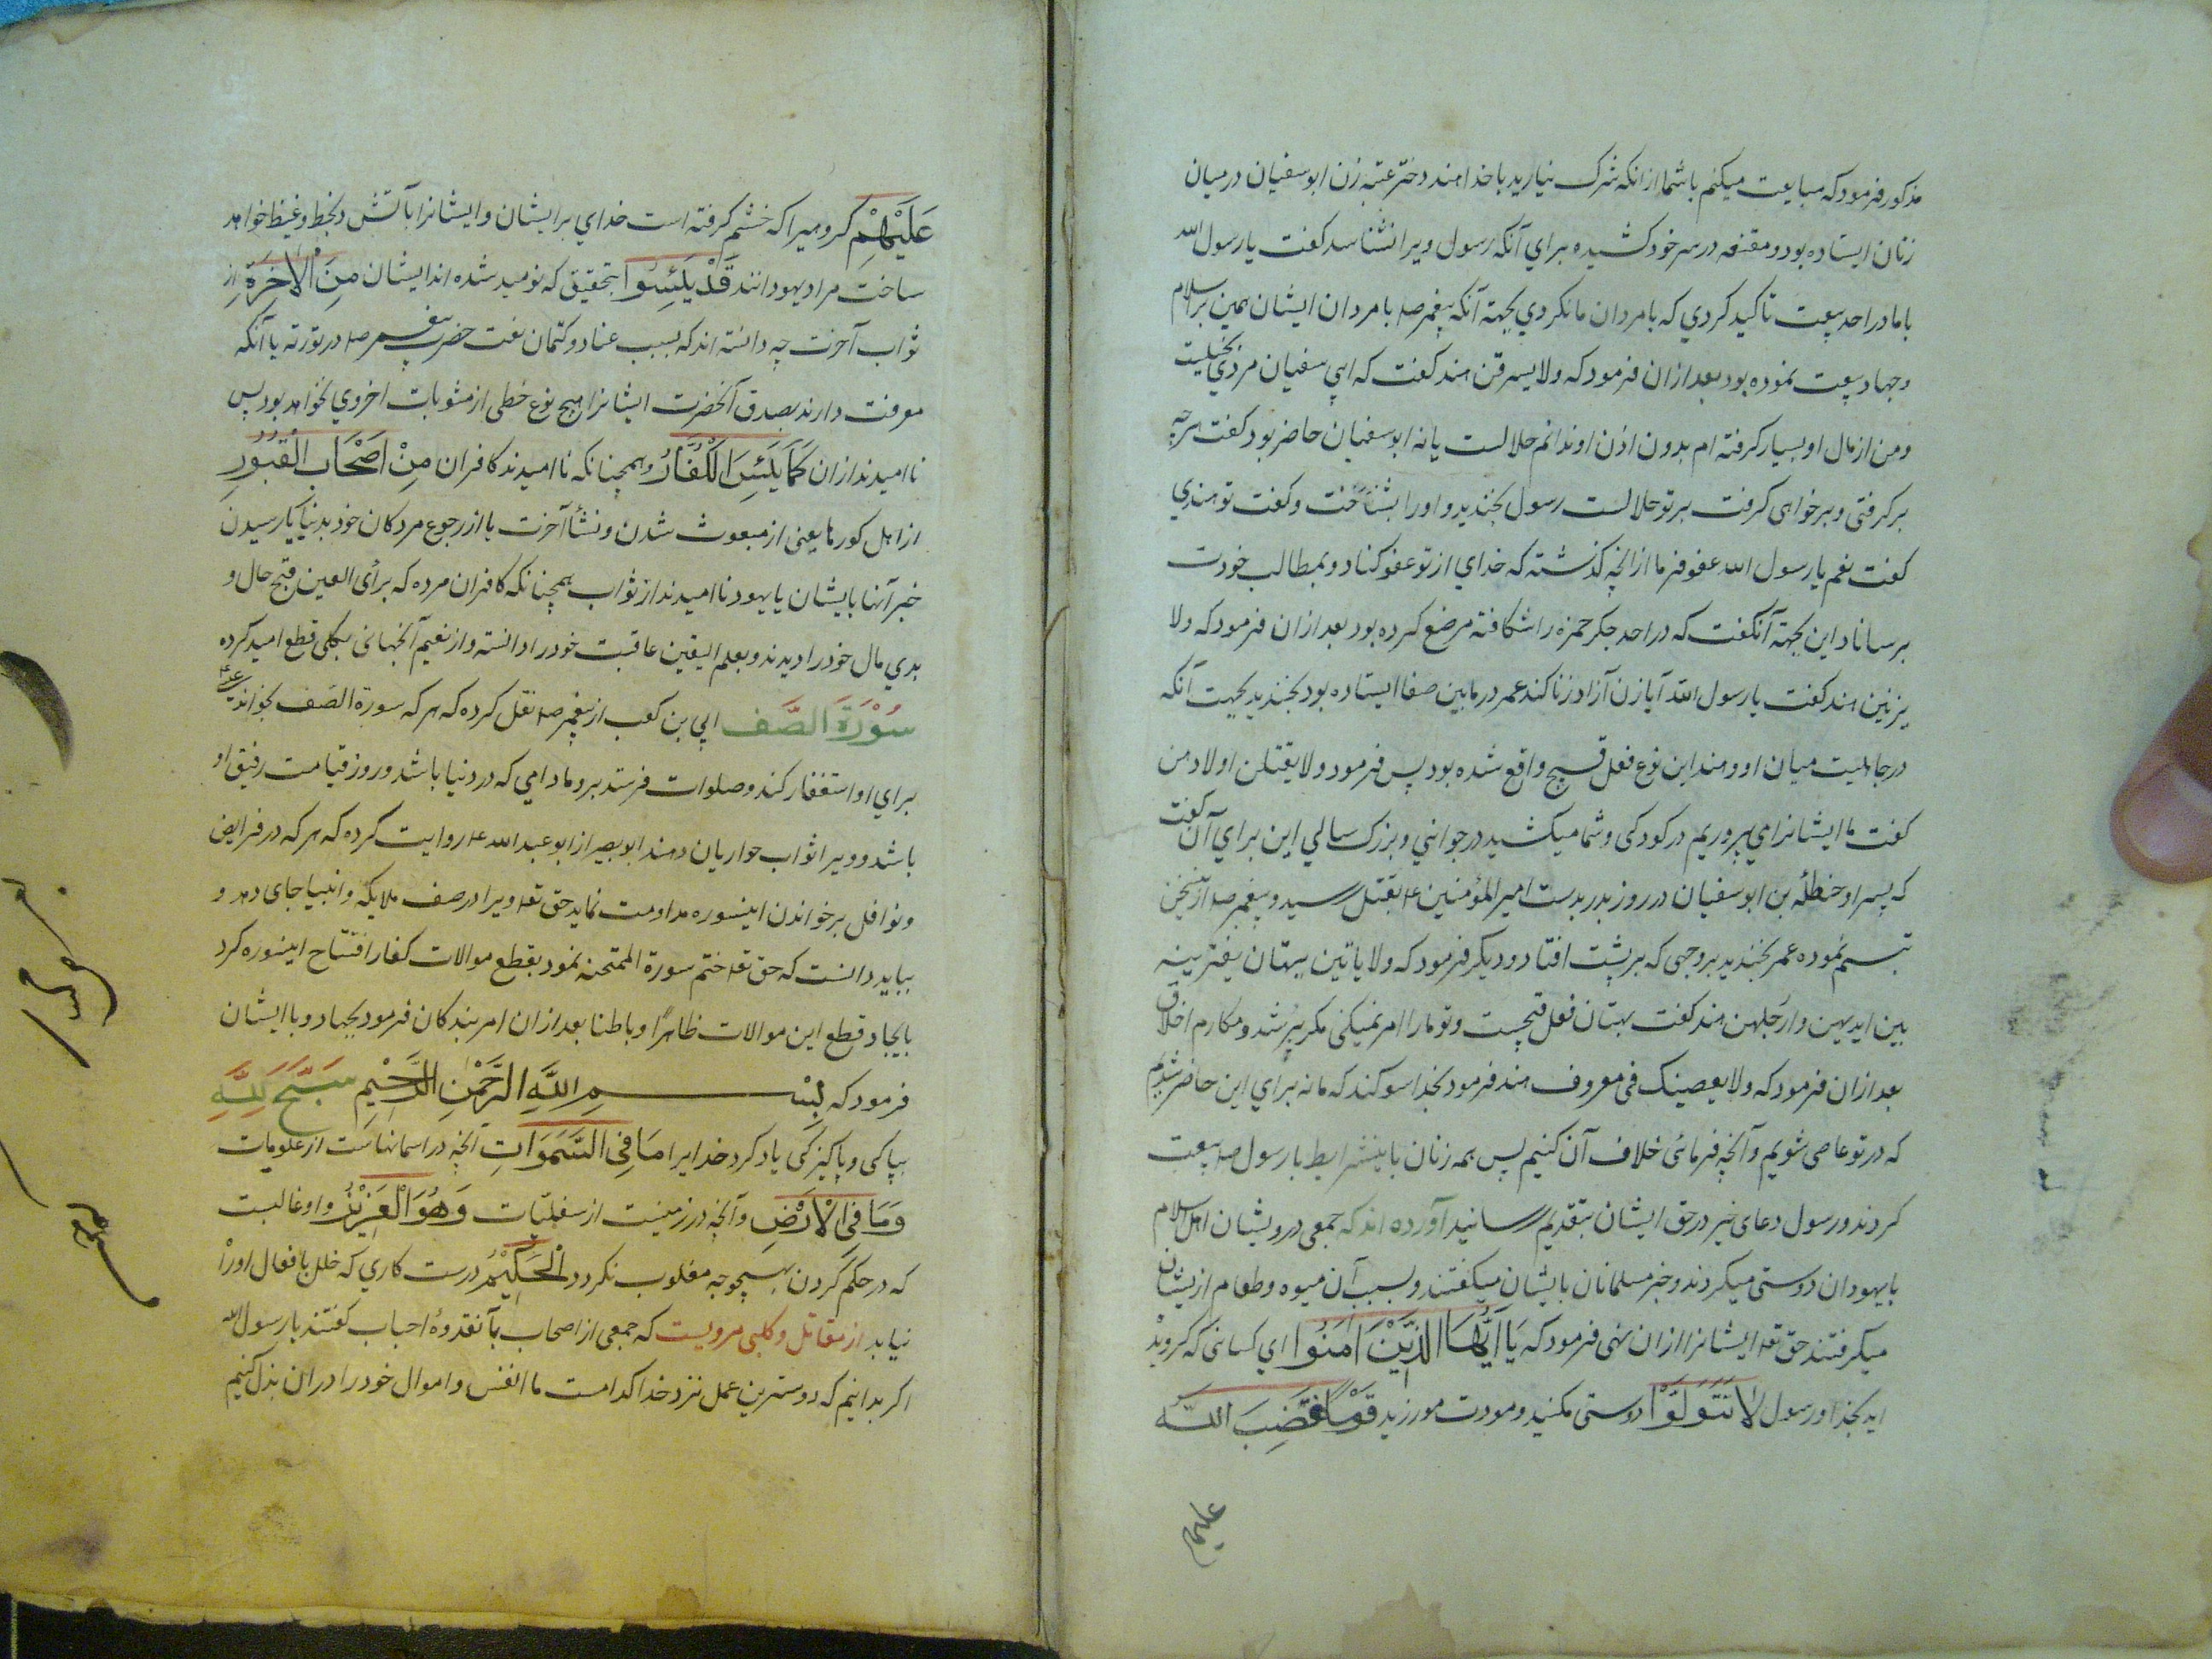 مذکور فرمود که مبایعت میکنم با شما از انکه شرک نیارید با خدا هند دختر عتبه زن ابوسفیان در میان
زنان ایستاده بود و مقنعه در سر خود کشیده برای آنکه رسول ویرا نشناسد گفت یا رسول الله
با ما در احد بیعت تاکید کردی که با مردان ما نکردی بجهة آنکه پیغمبر صلم با مردان ایشان همین بر اسلام
و جهاد بیعت نموده بود بعد ازان فرمود که ولا یسرقن هند گفت که ابی سفیان مردی بخیلیست
و من از مال او بسیار گرفته ام بدون اذن او ندانم حلالست یا نه ابو سفیان حاضر بود گفت هرچه
بر گرفتی و بر خواهی گرفت بر تو حلالست رسول بخندید و او را بشناخت و گفت تو هندی
گفت نعم یا رسول الله عفو فرما از انچه گذشته که خدای از تو عفو کناد و بمطالب خودت
برساناد این بجهة آنگفت که در احد جگر حمزه را شکافته مرضع کرده بود بعد ازان فرمود که ولا
یزنین هند گفت یا رسول الله آیا زن آزاد زنا کند عمر در مابین صفا ایستاده بود بخندید بجهت آنکه
در جاهلیت میان او و هند این نوع فعل قبیح واقع شده بود پس فرمود ولا یقتلن اولادهن
گفت ما ایشانرا می پروریم در کودکی و شما میکشید در جوانی و بزرک سالی این برای آن گفت
که پسر او حنظله بن ابو سفیان در روز بدر بدست امیر المؤمنین ع بقتل رسید و پیغمبر صلم ازین سخن
تبسم نموده عمر بخندید بروجهی که بر پشت افتاد و دیگر فرمود که ولا یاتین ببهتان یفترینه
بین ایدیهن وارجلهن هند گفت بهتان فعل قبیحست و تو ما را امر نمیکنی مگر برشد و مکارم اخلاق
بعد ازان فرمود که ولا یعصینک فی معروف هند فرمود بخدا سوکند که ما نه برای این حاضر شدیم
که در تو عاصی شویم و آنچه فرمائی خلاف آن کنیم پس همه زنان باینشرایط با رسول صلم بیعت
کردند و رسول دعای خیر در حق ایشان بتقدیم رسانید آورده اند که جمعی درویشان اهل اسلام
با یهودان دوستی میکردند و خبر مسلمانان بایشان میگفتند و بسبب آن میوه و طعام ازیشان
میگرفتند حق تع ایشانرا ازان نهی فرمود که یَا اَیُّهَا الَّذِیْنَ اٰمَنُوا ای کسانی که گروید
اید بخدا و رسول لَا تَتَوَلَّوْا دوستی مکنید و مودت مورزید قَوْمًا غَضِبَ اللّٰه
علیهم
عَلَیْهِمْ گروهیرا که خشم گرفته است خدای بر ایشان و ایشانرا بآتش سخط و غیظ خواهد
ساخت مراد یهودانند قَدْ یَئِسُوا بتحقیق که نومید شده اند ایشان مِنَ الْاٰخِرَةِ از
ثواب آخرت چه دانسته اند که بسبب عناد و کتمان نعت حضرت پیغمبر صلم در توریة با آنکه
معرفت دارند بصدق آنحضرت ایشانرا هیچ نوع حظی از مثوبات اخروی نخواهد بود پس
نا امیدند ازان کَمَا یَئِسَ الْکُفَّارُ همچنانکه نا امیدند کافران مِنْ اَصْحَابِ الْقُبُورِ
از اهل کورها یعنی از مبعوث شدن و نشأ آخرت یا از رجوع مردکان خود بدنیا یا رسیدن
خبر آنها بایشان یا یهود نا امیدند از ثواب همچنانکه کافران مرده که برأی العین قبح حال و
بدی مال خود را دیدند و بعلم الیقین عاقبت خود را دانسته و از نعیم آنجهانی بکلی قطع امید کرده
سُوْرَةَ الصَّف ابی بن کعب از پیغمبر صلم نقل کرده که هر که سورة الصف بخواند عیسی ع
برای او استغفار کند و صلوات فرستد برو مادامی که در دنیا باشد و روز قیامت رفیق او
باشد و ویرا ثواب حواریان دهند ابو بصیر از ابو عبد الله ع روایت کرده که هر که در فرایض
و نوافل بر خواندن اینسوره مداومت نماید حق تع ویرا در صف ملایکه و انبیا جای دهد و
بباید دانست که حق تع ختم سورة الممتحنه نمود بقطع موالات کفار افتتاح اینسوره کرد
بایجاد قطع این موالات ظاهرًا و باطنا بعد ازان امر بندکان فرمود بجهاد و با ایشان
فرمود که بِسْمِ اللّٰهِ الرَّحْمٰنِ الرَّحِیْمِ سَبَّحَ لِلّٰهِ
بپاکی و پاکیزکی یاد کرد خدایرا مَا فِی السَّمَوَاتِ آنچه در اسمانهاست از علویات
وَمَا فِی الْاَرْضِ و آنچه در زمینست از سفلیّات وَهُوَ الْعَزِیْزُ و او غالبست
که در حکم کردن بهیچوجه مغلوب نگردد اَلْحَکِیْمُ درست کاری که خلل بافعال او را
نیابد از مقاتل و کلبی مرویست که جمعی از اصحاب بآنقدوهٔ احباب گفتند یا رسول الله
اکر بدانیم که دوسترین عمل نزد خدا کدامست ما انفس و اموال خود را دران بذل کنیم